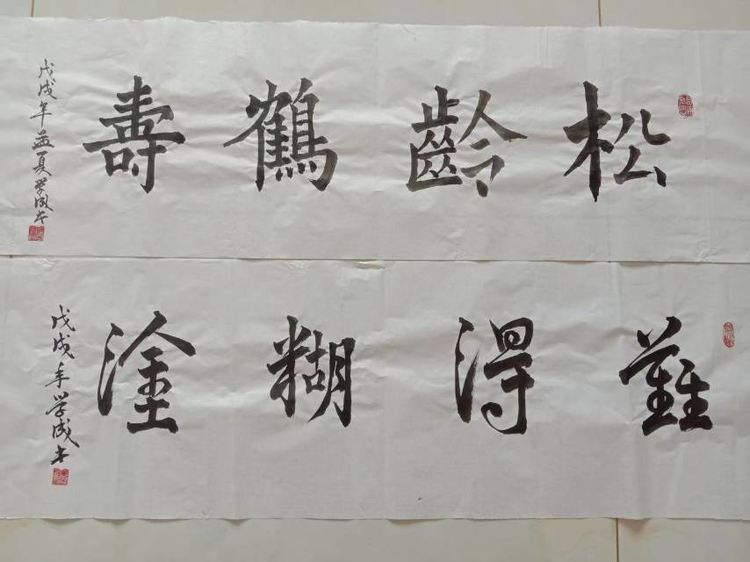 松齡鶴壽
戊戌年孟夏学成书
難得糊塗
戊戌年学成书